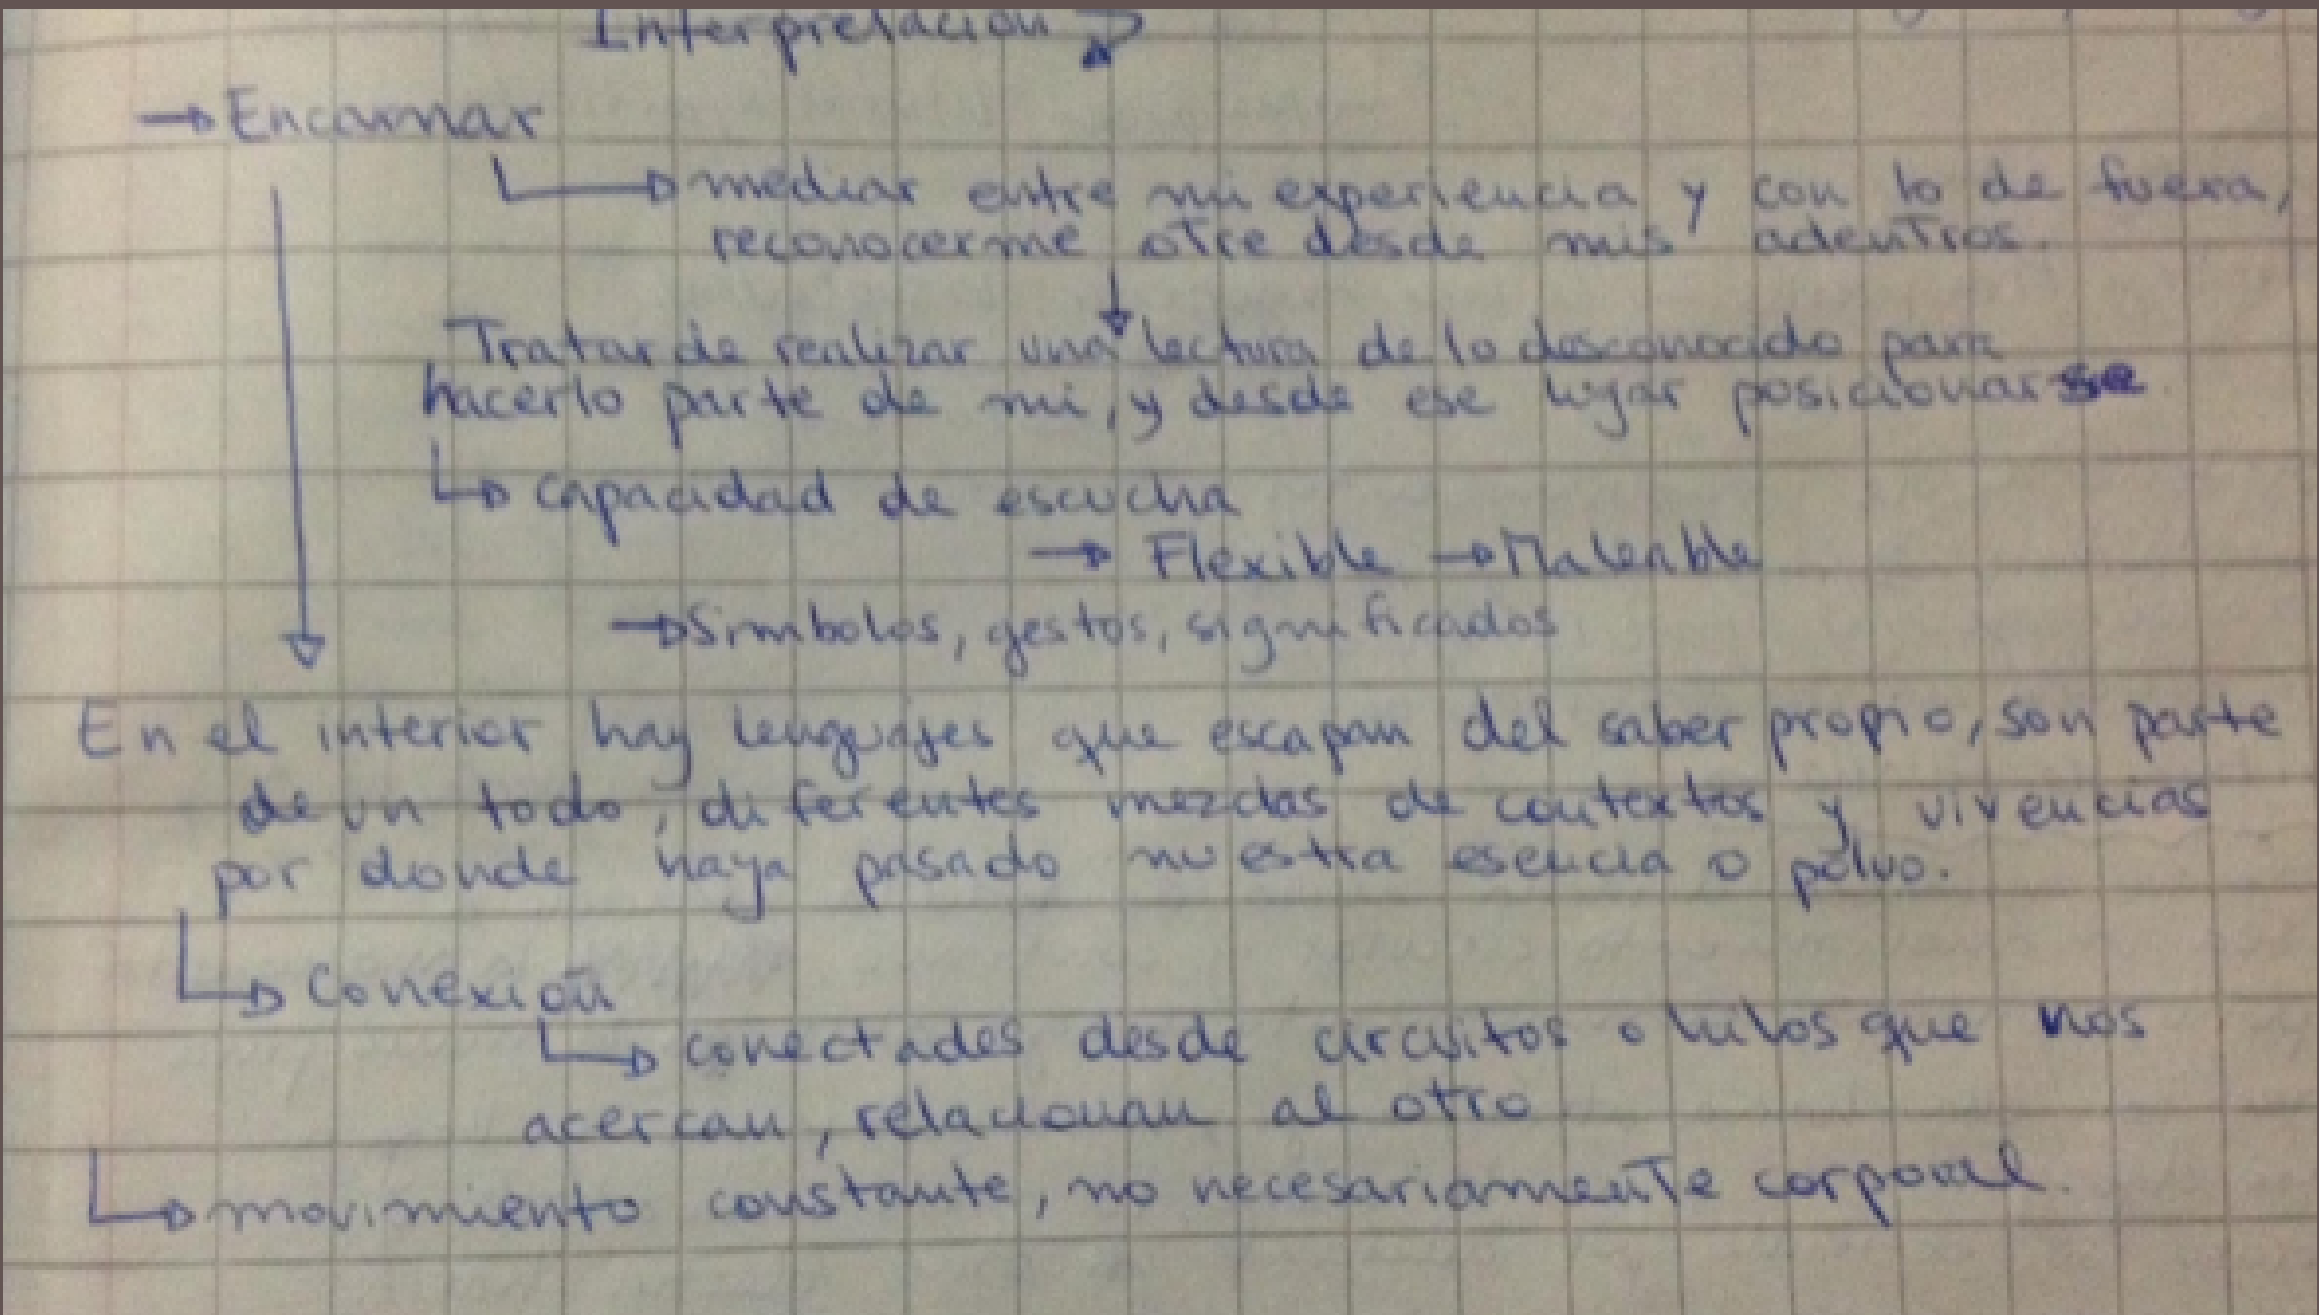 Interpretación
→ Encarnar
→ mediar entre mi experiencia y con lo de fuera,
reconocerme otre desde mis adentros.
Tratar de realizar una lectura de lo desconocido para
hacerlo parte de mi, y desde ese lugar posicionarse.
→ capacidad de escucha
→ Flexible → Maleable
→ Simbolos, gestos, significados
En el interior hay lenguajes que escapan del saber propio, son parte
de un todo, diferentes mezclas de contextos y vivencias
por donde haya pasado nuestra esencia o polvo.
→ Conexión
→ conectades desde circuitos o hilos que nos
acercan, relacionan al otro
→ movimiento constante, no necesariamente corporal.